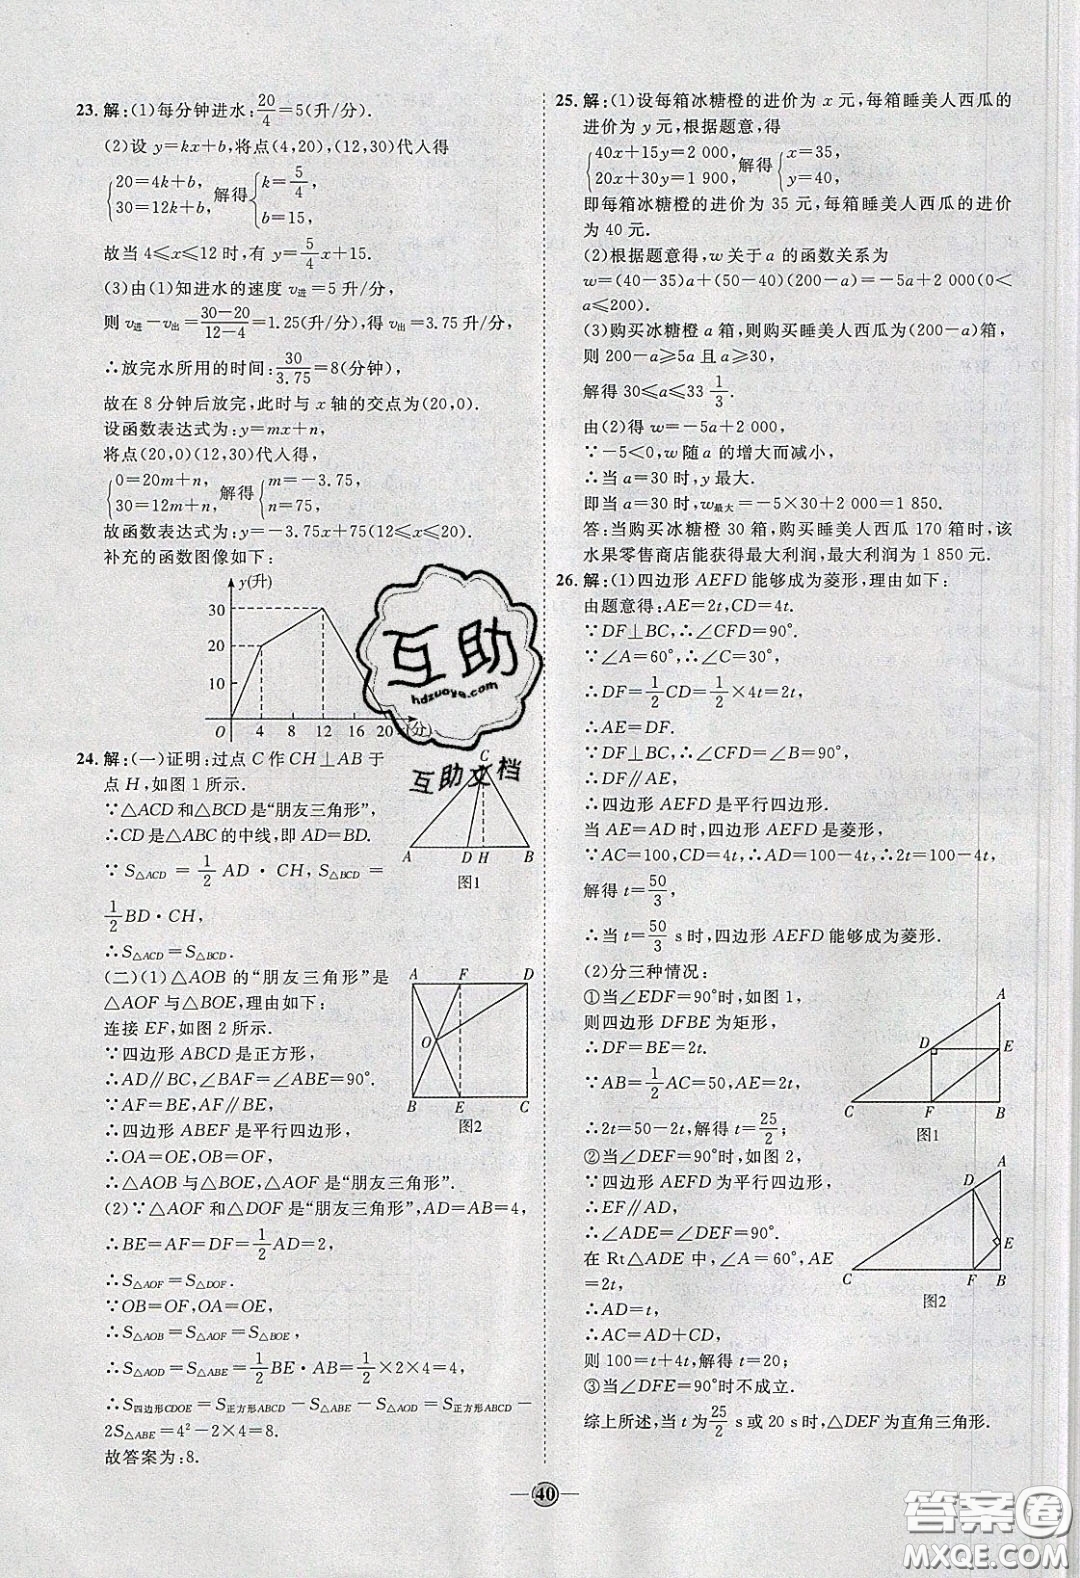 23. 解:(1)每分钟进水:20/4=5(升/分).
(2)设 y=kx+b,将点(4,20),(12,30)代人得
{20=4k+b, 30=12k+b, 解得{k=5/4, b=15,
故当 4≤x≤12 时,有 y=5/4x+15.
(3)由(1)知进水的速度 v进=5 升/分,
则 v进-v出=30-20/12-4=1.25(升/分),得 v出=3.75 升/分,
∴放完水所用的时间:30/3.75=8(分钟).
故在 8 分钟后放完,此时与 x 轴的交点为(20,0).
设函数表达式为:y=mx+n,
将点(20,0)(12,30)代人得,
{0=20m+n, 30=12m+n, 解得{m=-3.75, n=75,
故函数表达式为:y=-3.75x+75(12≤x≤20).
补充的函数图像如下:
y(升)
30
20
10
O 4 8 12 16 20 (分)
24. 解:(一)证明:过点 C 作 CH⊥AB 于
点 H,如图 1 所示.
∵△ACD 和△BCD 是“朋友三角形”,
∴CD 是△ABC 的中线,即 AD=BD.
∵S△ACD=1/2AD·CH,S△BCD=
1/2BD·CH,
∴S△ACD=S△BCD.
C
A D H B
图1
(二)(1)△AOB 的“朋友三角形”是
△AOF 与△BOE,理由如下:
连接 EF,如图 2 所示.
∵四边形 ABCD 是正方形,
∴AD∥BC,∠BAF=∠ABE=90°.
∵AF=BE,AF∥BE,
∴四边形 ABEF 是平行四边形,
∴OA=OE,OB=OF,
∴△AOB 与△AOF、△BOE 是“朋友三角形”.
A F D
O
B E C
图2
(2)∵△AOF 和△DOF 是“朋友三角形”,AD=AB=4,
∴BE=AF=DF=1/2AD=2,
∴S△AOF=S△DOF.
∵OB=OF,OA=OE,
∴S△AOB=S△AOF=S△BOE,
∴S△AOD=S△ABE=1/2BE·AB=1/2×2×4=4,
∴S四边形CDOE=S正方形ABCD-S△ABE-S△AOD=S正方形ABCD-
2S△ABE=4²-2×4=8.
故答案为:8.
25. 解:(1)设每箱冰糖橙的进价为 x 元,每箱睡美人西瓜的
进价为 y 元,根据题意,得
{40x+15y=2 000, 20x+30y=1 900, 解得{x=35, y=40,
即每箱冰糖橙的进价为 35 元,每箱睡美人西瓜的进价
为 40 元.
(2)根据题意得,w 关于 a 的函数关系为
w=(40-35)a+(50-40)(200-a)=-5a+2000(0<
a≤200).
(3)购买冰糖橙 a 箱,则购买睡美人西瓜为(200-a)箱,
则 200-a≥5a 且 a≥30,
解得 30≤a≤33 1/3.
由(2)得 w=-5a+2 000,
∵-5<0,w 随 a 的增大而减小,
∴当 a=30 时,y 最大.
即当 a=30 时,w最大=-5×30+2 000=1 850.
答:当购买冰糖橙 30 箱,购买睡美人西瓜 170 箱时,该
水果零售商店能获得最大利润,最大利润为 1 850 元.
26. 解:(1)四边形 AEFD 能够成为菱形,理由如下:
由题意得:AE=2t,CD=4t.
∵DF⊥BC,∴∠CFD=90°.
∵∠A=60°,∴∠C=30°,
∴DF=1/2CD=1/2×4t=2t,
∴AE=DF.
∵DF⊥BC,∴∠CFD=∠B=90°,
∴DF∥AE,
∴四边形 AEFD 是平行四边形.
当 AE=AD 时,四边形 AEFD 是菱形,
∵AC=100,CD=4t,∴AD=100-4t,∴2t=100-4t,
解得 t=50/3,
∴当 t=50/3 s时,四边形 AEFD 能够成为菱形.
(2)分三种情况:
①当∠EDF=90°时,如图 1,
则四边形 DFBE 为矩形,
∴DF=BE=2t,
∵AB=1/2AC=50,AE=2t,
∴2t=50-2t,解得 t=25/2;
A
D E
C F B
图1
②当∠DEF=90°时,如图 2,
∵四边形 AEFD 为平行四边形,
∴EF∥AD,
∴∠ADE=∠DEF=90°.
在 Rt△ADE 中,∠A=60°,AE
=2t,
∴AD=t,
∴AC=AD+CD,
则 100=t+4t,解得 t=20;
A
D
E
C F B
图2
③当∠DFE=90°时不成立.
综上所述,当 t 为25/2 s 或 20 s时,△DEF 为直角三角形.
40
互助
hdzuoye.com
互助文档
答案圈
MXQE.COM